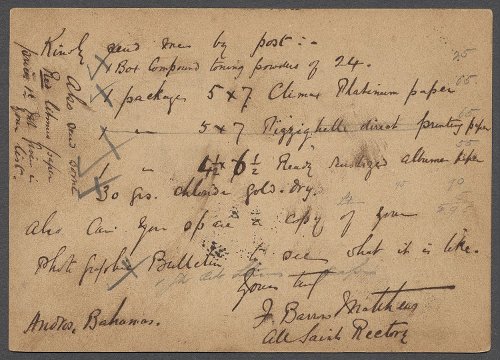 Kindly send me by post:-
Box Compound toning powders of 24.
packages 5 x 7 Climax Platinum paper
" 5 x 7 direct printing paper
" 4½ x 6½ Ready sensitized albumen paper
30 grs. chloride gold. dry.
Also can you spare a copy of your
Photographic Bulletin to see what it is like.
Yours truly
J. Barrow Matthews
All Saints Rectory
Andros, Bahamas.
Also send some
Red litmus paper
your list.